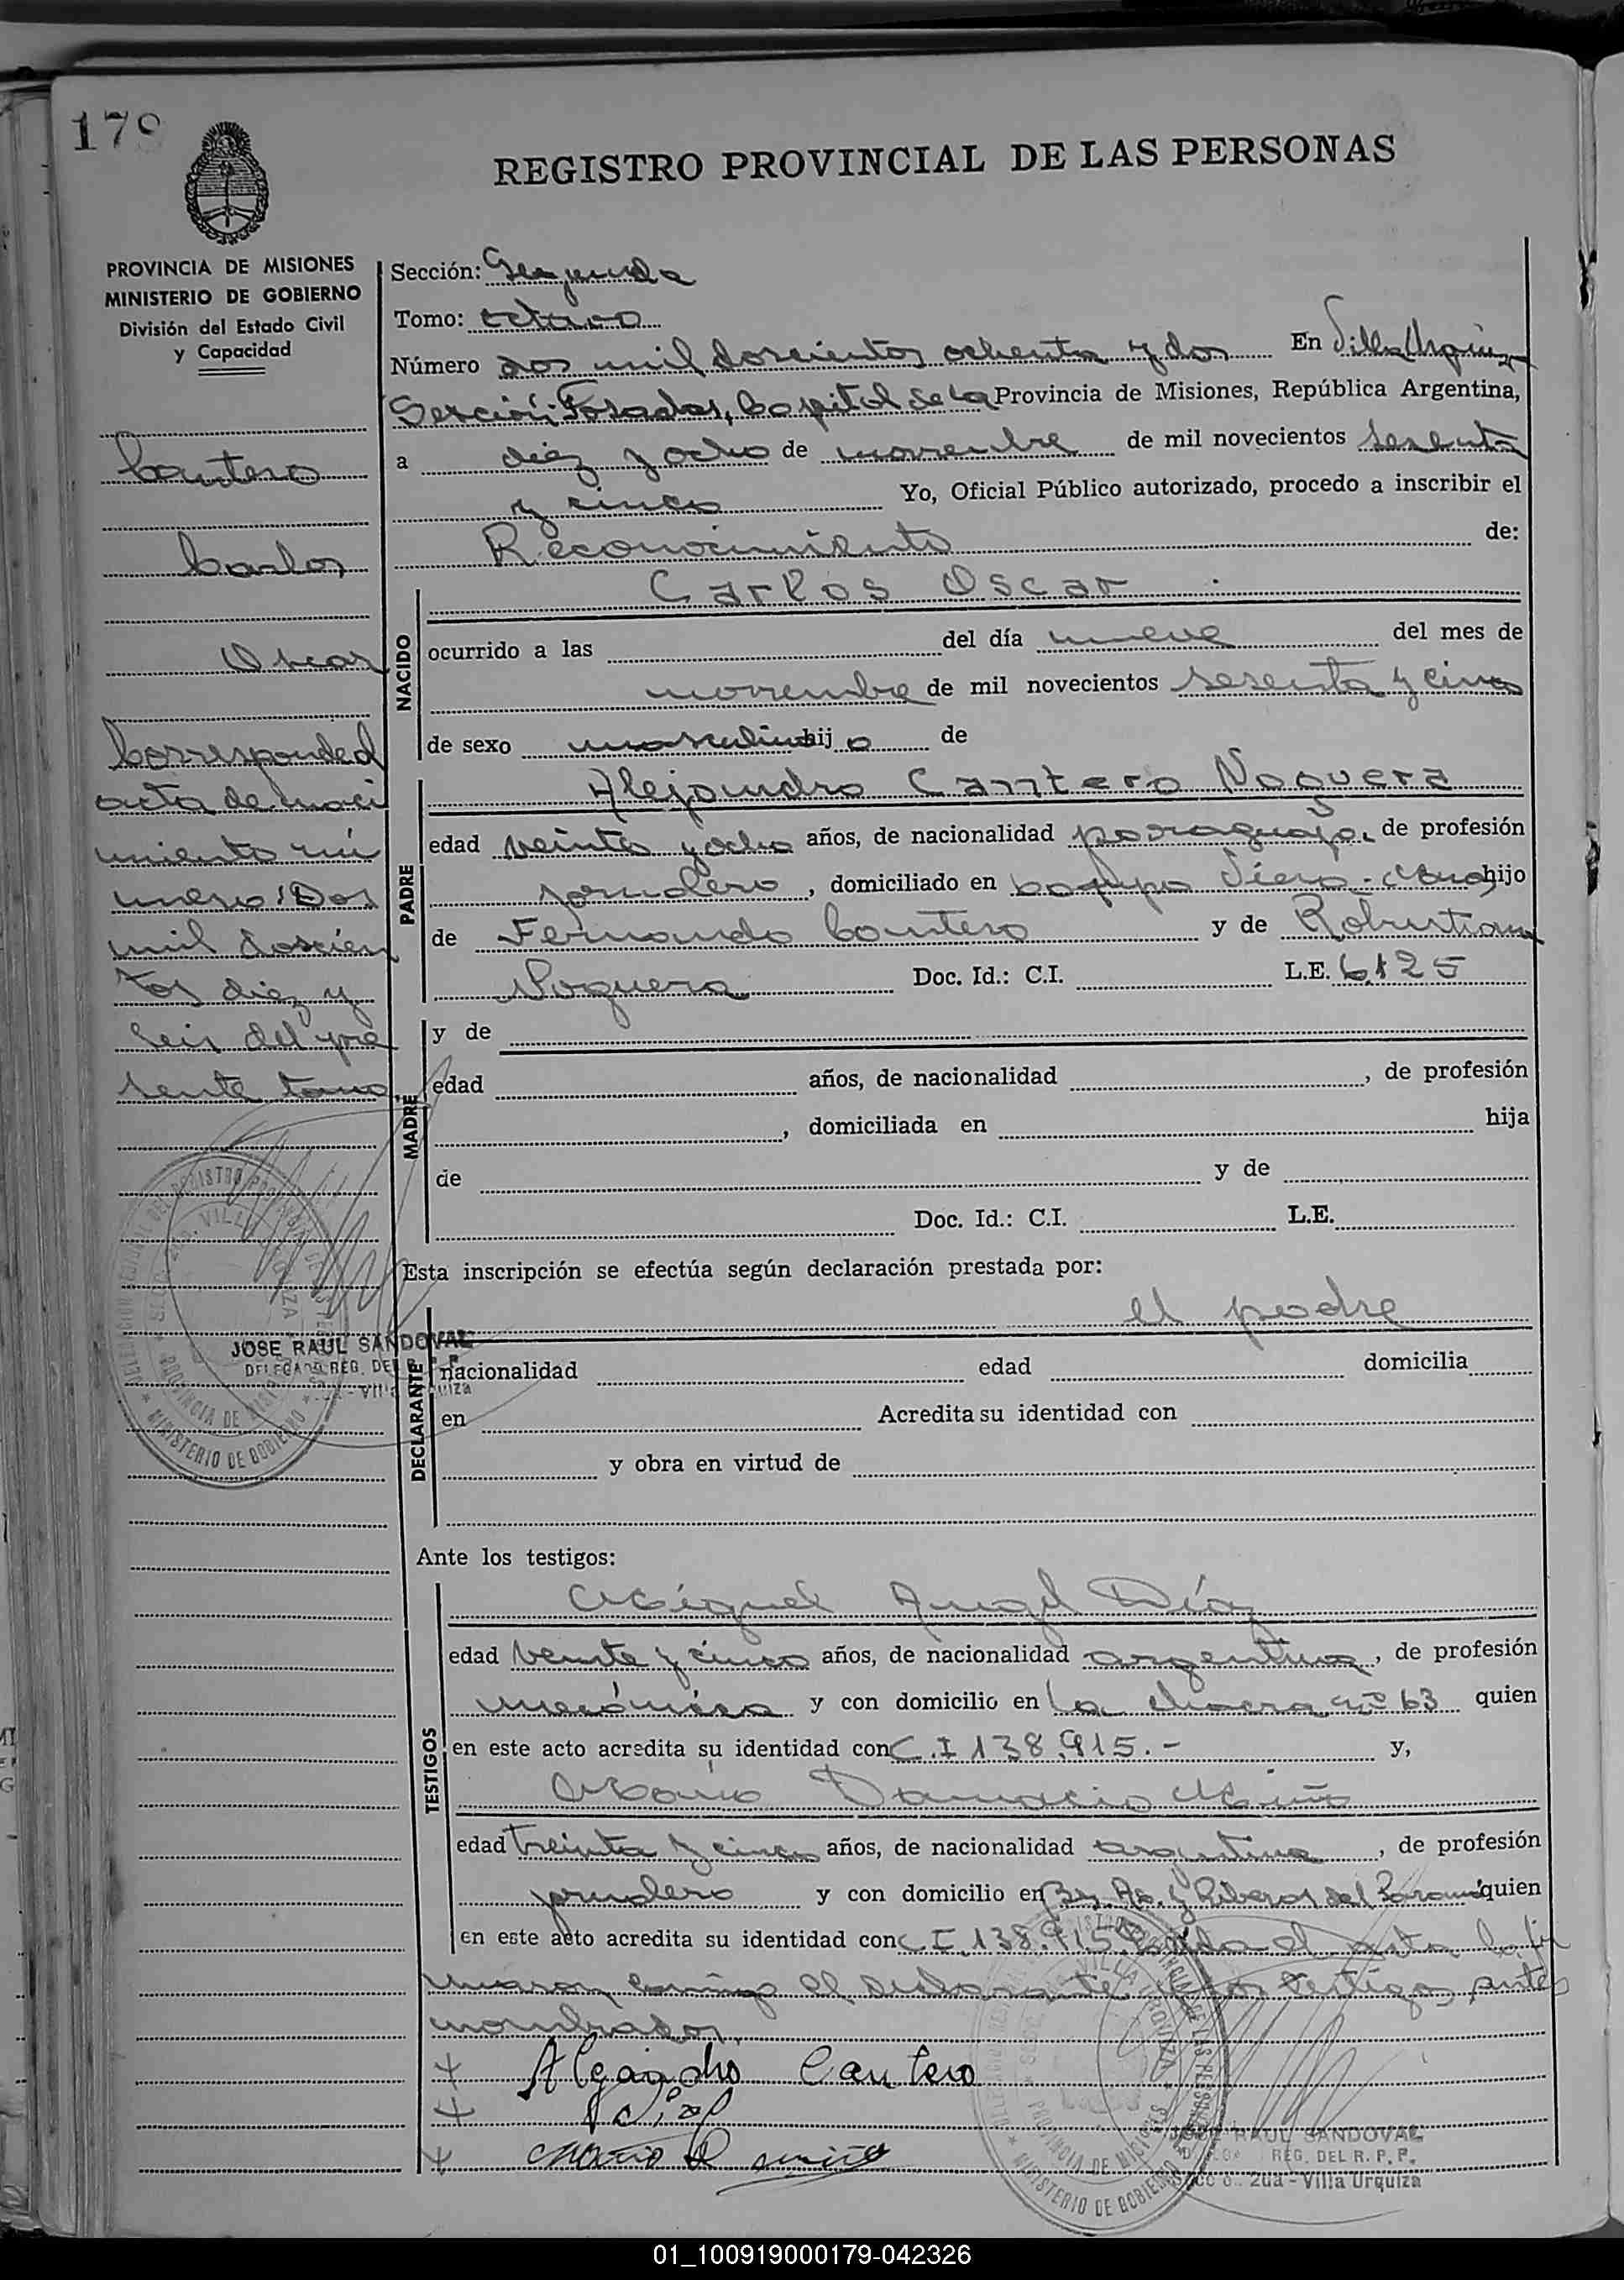 179
REGISTRO PROVINCIAL DE LAS PERSONAS
PROVINCIA DE MISIONES
MINISTERIO DE GOBIERNO
División del Estado Civil
y Capacidad
Cantero
Carlos
Oscar
Corresponde al
acta de naci
miento nú
mero: Dos
mil doscien
tos diez y
seis del pre
sente tomo.
JOSE RAUL SANDOVAL
DELEGADO REG. DEL R. P. P.
Villa Urquiza
Sección: Segunda
Tomo: octavo
Número dos mil doscientos ochenta y dos En Villa Urquiza
Sección: Posadas, Capital de la Provincia de Misiones, República Argentina,
a diez y ocho de noviembre de mil novecientos sesenta
y cinco Yo, Oficial Público autorizado, procedo a inscribir el
Reconocimiento de:
NACIDO
Carlos Oscar
ocurrido a las del día nueve del mes de
noviembre de mil novecientos sesenta y cinco
de sexo masculino hijo de
PADRE
Alejandro Cantero Noguera
edad veinte y ocho años, de nacionalidad paraguaya, de profesión
jornalero, domiciliado en hijo
de Fernando Cantero y de Robustiana
Noguera Doc. Id.: C.I. L.E. 6125
MADRE
y de
edad años, de nacionalidad , de profesión
, domiciliada en hija
de y de
Doc. Id.: C.I. L.E.
Esta inscripción se efectúa según declaración prestada por:
el padre
DECLARANTE
nacionalidad edad domicilia
en Acredita su identidad con
y obra en virtud de
Ante los testigos:
TESTIGOS
Miguel Angel Díaz
edad veinte y cinco años, de nacionalidad argentina, de profesión
mecánico y con domicilio en la chacra nº 63 quien
en este acto acredita su identidad con C.I 138.915.- y,
Mario Damacio Miño
edad treinta y cinco años, de nacionalidad argentina, de profesión
jornalero y con domicilio en Bs. As. y Riberas del Paraná quien
en este acto acredita su identidad con C.I. 138.915 Leída el acta la fir
maron conmigo el declarante y los testigos antes
nombrados.
Alejandro Cantero
Díaz
Mario D Miño
JOSE RAUL SANDOVAL
REG. DEL R. P. P.
2da - Villa Urquiza
MINISTERIO DE GOBIERNO
PROVINCIA DE MISIONES
01_100919000179-042326